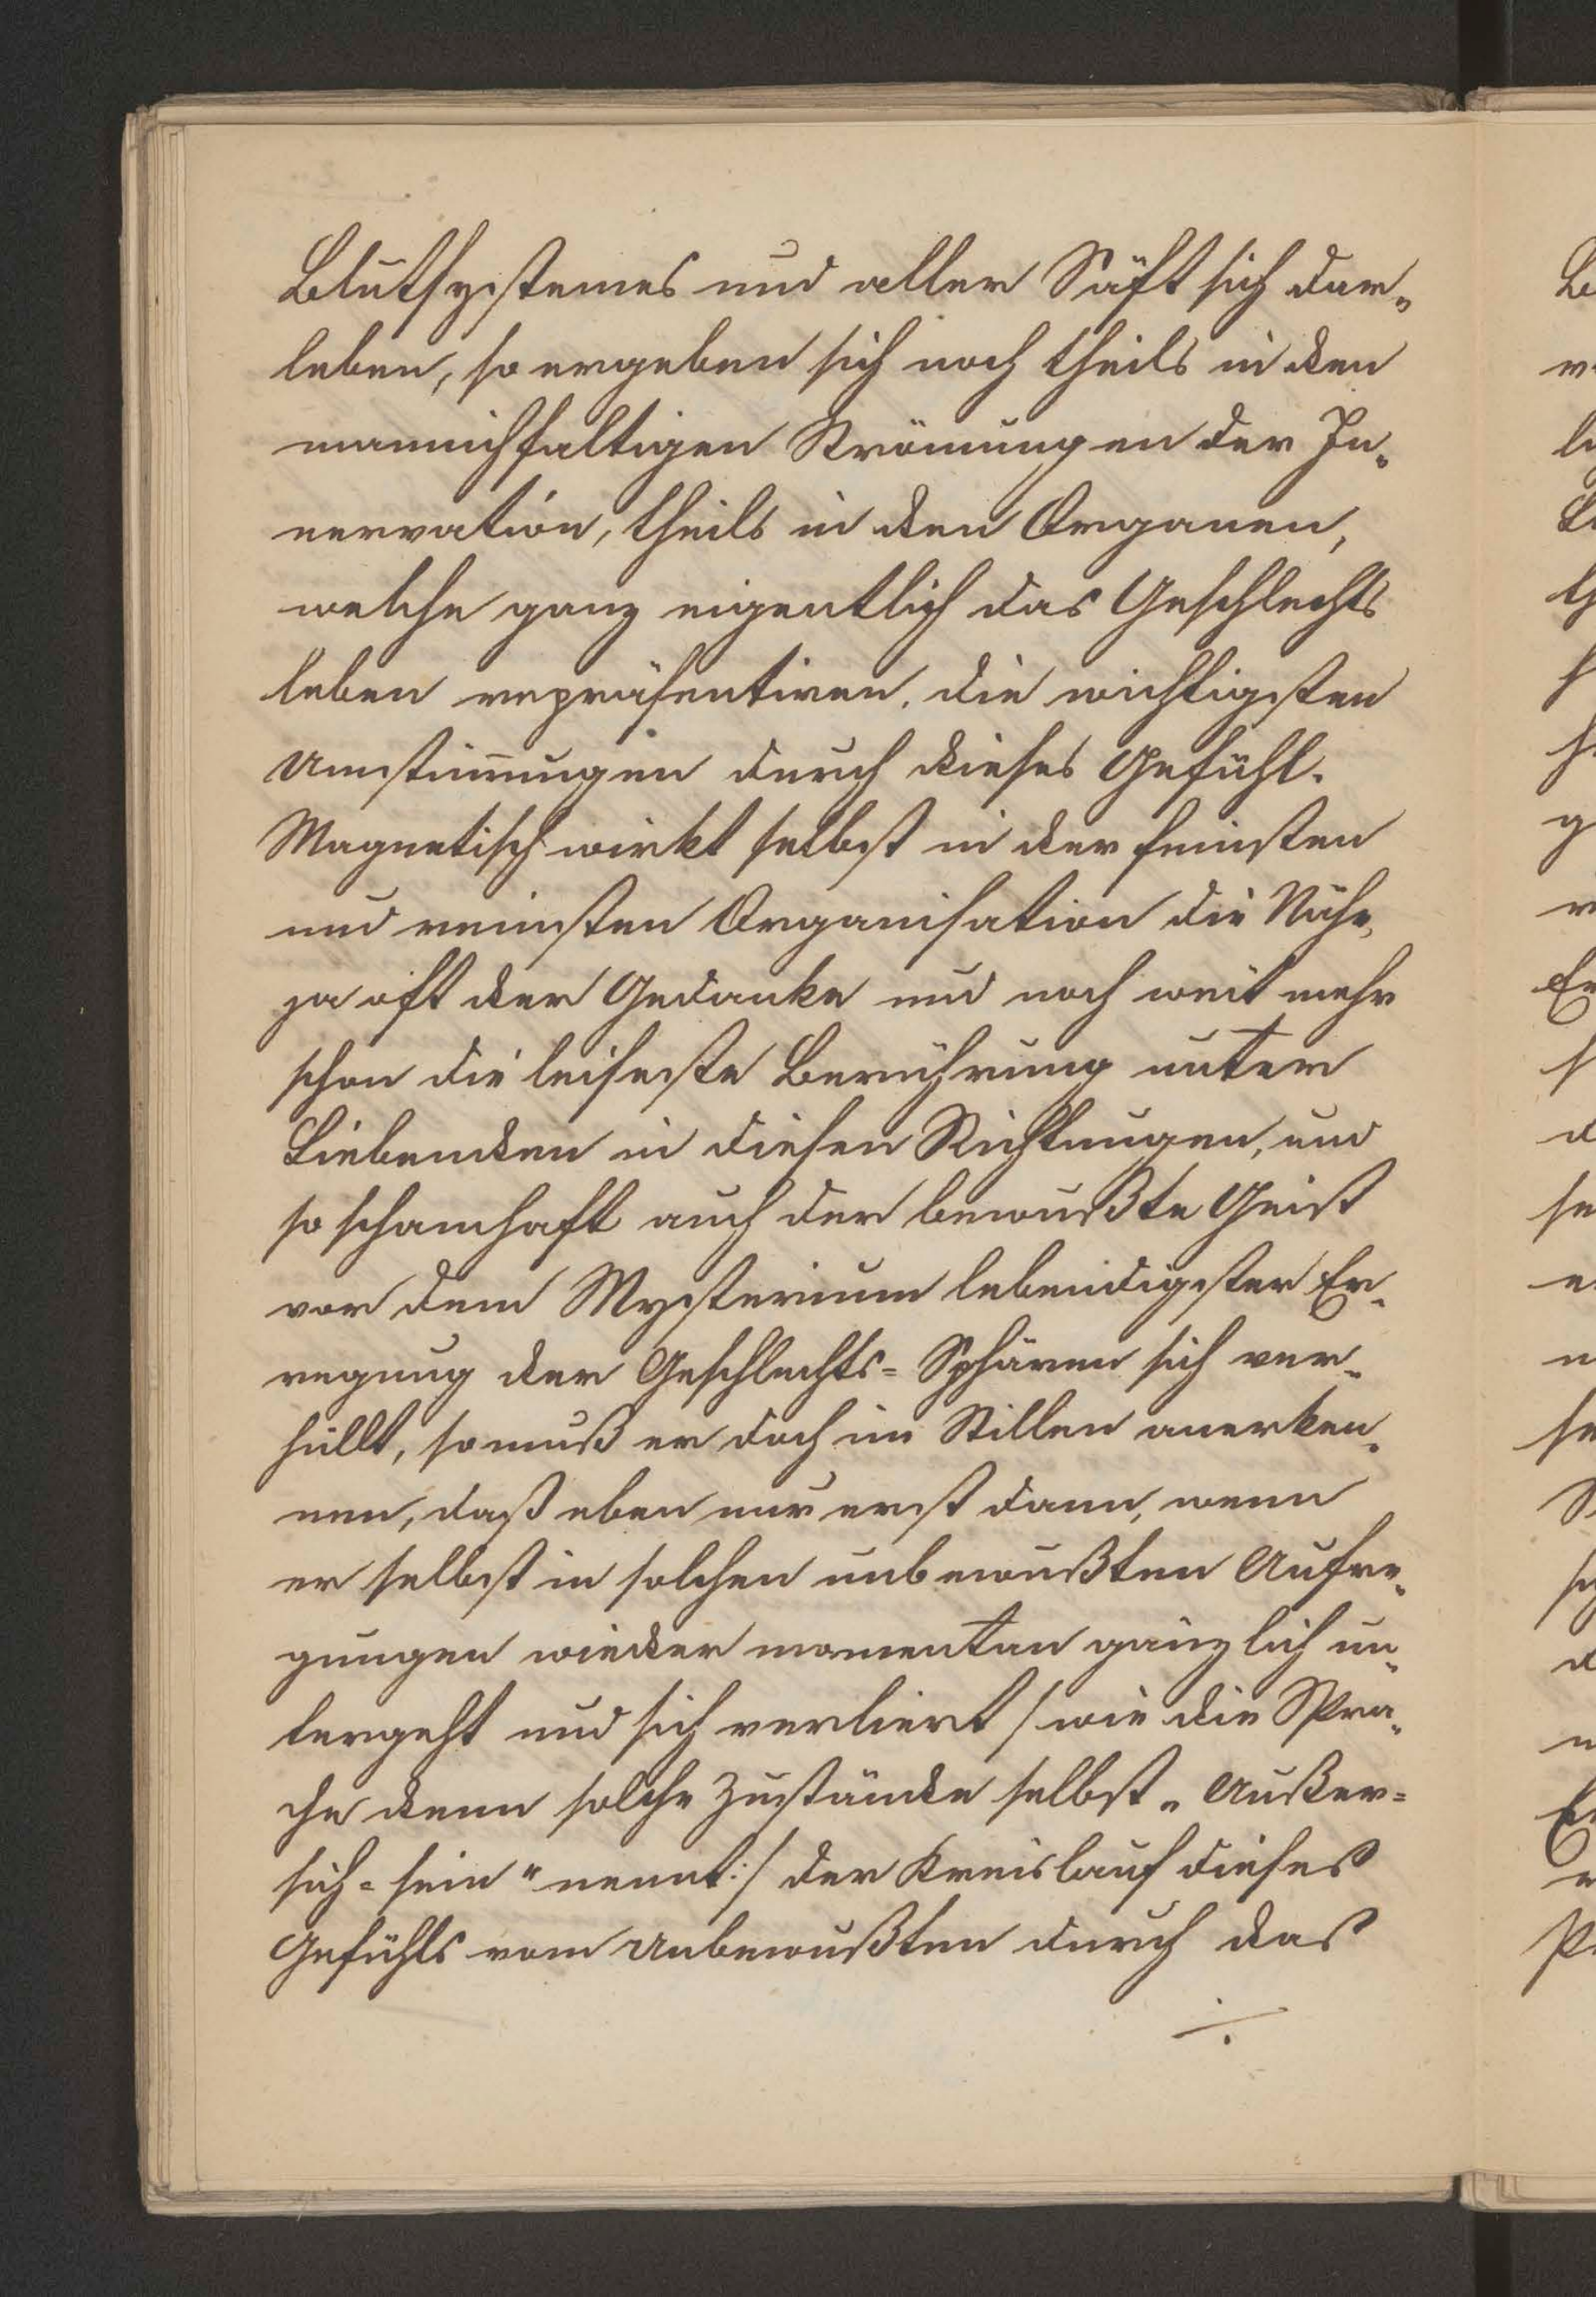 Blutsystemes und aller Säft sich dar„
leben, so ergeben sich noch theils in den
mannichfaltigen Strömungen der In„
nervation, theils in den Organen,
welche ganz eigentlich das Geschlechts
leben repräsentiren, die wichtigsten
Umstimungen durch dieses Gefühl.
Magnetisch wirkt selbst in der feinsten
und reinsten Organisation die Nähe,
ja oft der Gedanke und noch weit mehr
schon die leiseste Berührung unter
Liebenden in diesen Richtungen, und
so schamhaft auch der bewußte Geist
vor dem Mysterium lebendigster Er„
regung der Geschlechts= Sphären sich ver„
hüllt, so muß er doch im Stillen anerken„
nen, daß eben nur erst dann, wenn
er selbst in solchen unbewußten Aufre„
gungen wieder momentan gänzlich un„
tergeht und sich verliert / wie die Spra„
che denn solche Zustände selbst „Außer=
sich=sein“ nennt:/ der Kreislauf dieses
Gefühls vom Unbewußten durch das
./.